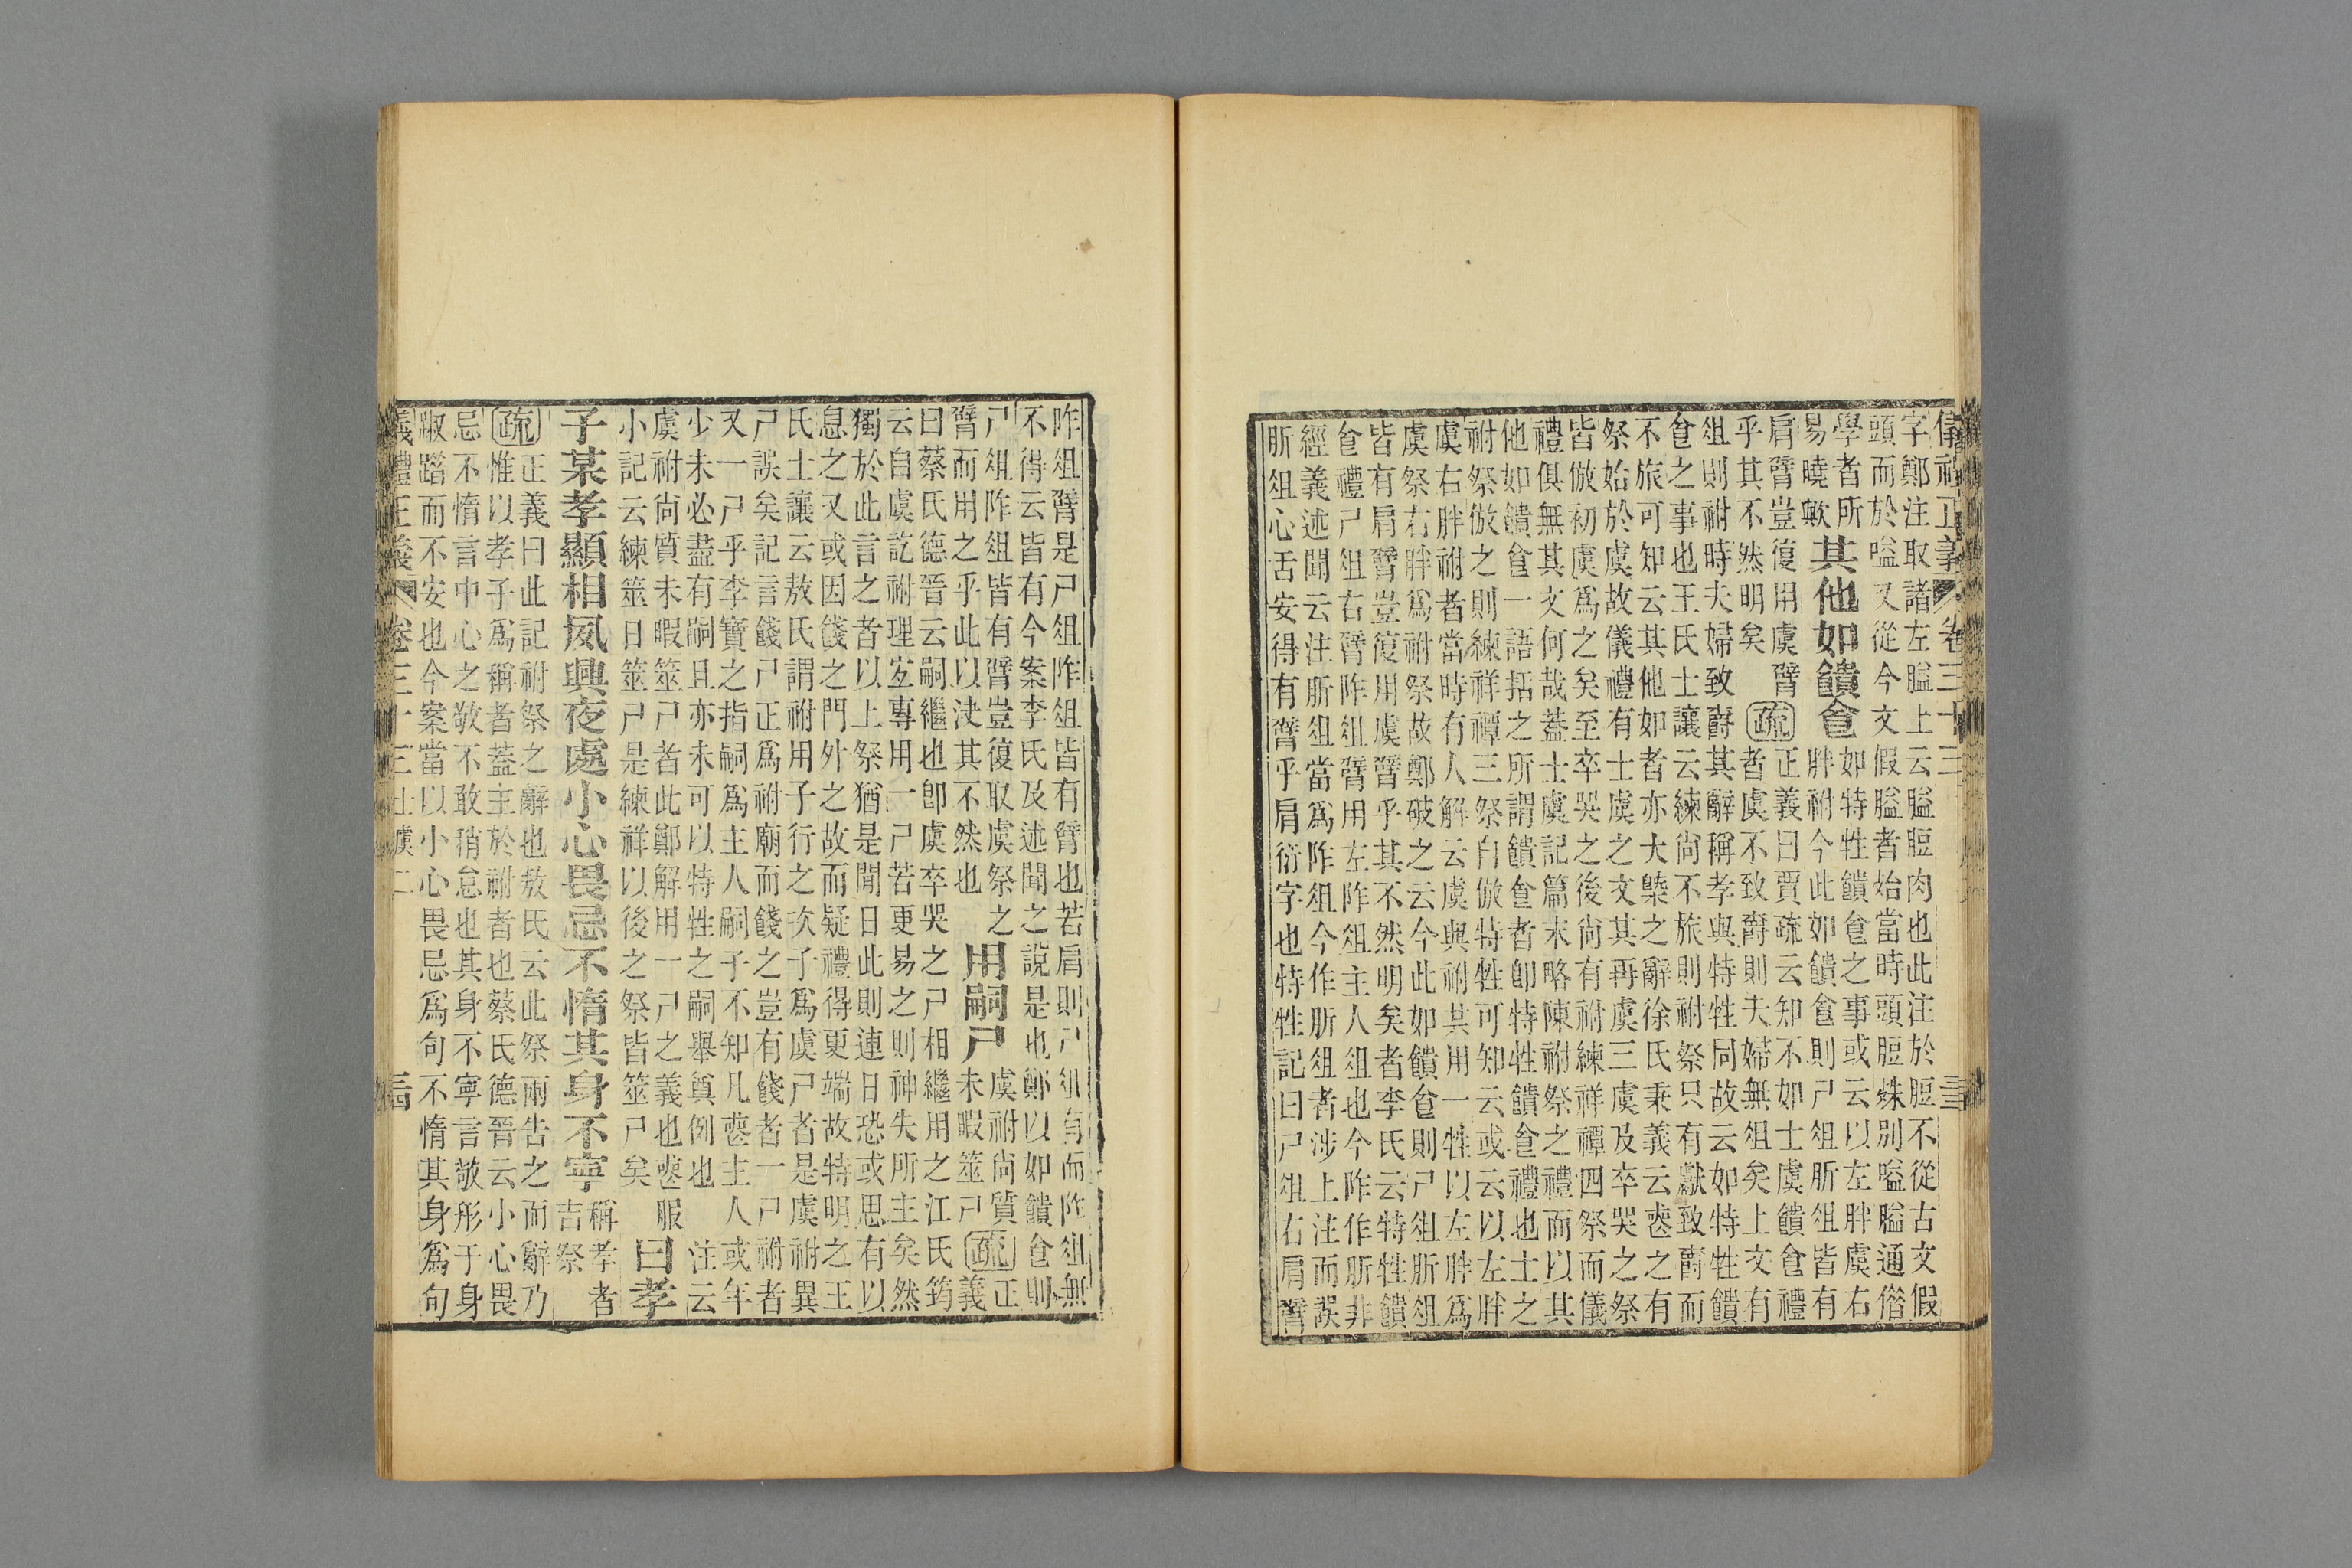 儀禮正義 卷三十三
字鄭注取諸左膉上云膉脰肉也此注於脰不從古文假
頭而於嗌又從今文假膉者始當時頭脰殊別嗌膉通俗
學者所
易曉歟
其他如饋食
如特牲饋食之事或云以左胖虞右
胖祔今此如饋食則尸俎肵俎皆有
肩臂豈復用虞臂
乎其不然明矣
疏
正義曰賈疏云知不如士虞饋食禮
者虞不致爵則夫婦無俎矣上文有
俎則祔時夫婦致爵其辭稱孝與特牲同故云如特牲饋
食之事也王氏士讓云練尚不旅則祔祭只有獻致爵而
不旅可知云其他如者亦大槩之辭徐氏秉義云喪之有
祭始於虞故儀禮有士虞之文其再虞三虞及卒哭之祭
皆倣初虞爲之矣至卒哭之後尚有祔練祥禫四祭而儀
禮俱無其文何哉蓋士虞記篇末略陳祔祭之禮而以其
他如饋食一語括之所謂饋食者卽特牲饋食禮也士之
祔祭倣之則練祥禫三祭自倣特牲可知云或云以左胖
虞右胖祔者當時有人解云虞與祔共用一牲以左胖爲
虞祭右胖爲祔祭故鄭破之云今此如饋食則尸俎肵俎
皆有肩臂豈復用虞臂乎其不然明矣者李氏云特牲饋
食禮尸俎右臂阼俎臂用左阼俎主人俎也今阼作肵非
經義述聞云注肵俎當爲阼俎今作肵俎者涉上注而誤
肵俎心舌安得有臂乎肩衍字也特牲記曰尸俎右肩臂
阼俎臂是尸俎阼俎皆有臂也若肩則尸俎有而阼俎無
不得云皆有今案李氏及述聞之說是也鄭以如饋食則
尸俎阼俎皆有臂豈復取虞祭之
臂而用之乎此以決其不然也
用嗣尸
虞祔尚質
未暇筮尸
疏
正
義
曰蔡氏德晉云嗣繼也卽虞卒哭之尸相繼用之江氏筠
云自虞訖祔理宜專用一尸若更易之則神失所主矣然
獨於此言之者以上祭猶是閒日此則連日恐或思有以
息之又或因餞之門外之故而疑禮得更端故特明之王
氏士讓云敖氏謂祔用子行之次子爲虞尸者是虞祔異
尸誤矣記言餞尸正爲祔廟而餞之豈有餞者一尸祔者
又一尸乎李寶之指嗣爲主人嗣子不知凡喪主人或年
少未必盡有嗣且亦未可以特牲之嗣舉奠例也 注云
虞祔尚質未暇筮尸者此鄭解用一尸之義也喪服
小記云練筮日筮尸是練祥以後之祭皆筮尸矣
曰孝
子某孝顯相夙興夜處小心畏忌不惰其身不寧
稱孝者
吉祭
疏
正義曰此記祔祭之辭也敖氏云此祭兩告之而辭乃
惟以孝子爲稱者蓋主於祔者也蔡氏德晉云小心畏
忌不惰言中心之敬不敢稍怠也其身不寧言敬形于身
踧踖而不安也今案當以小心畏忌爲句不惰其身爲句
儀禮正義 卷三十三 士虞二